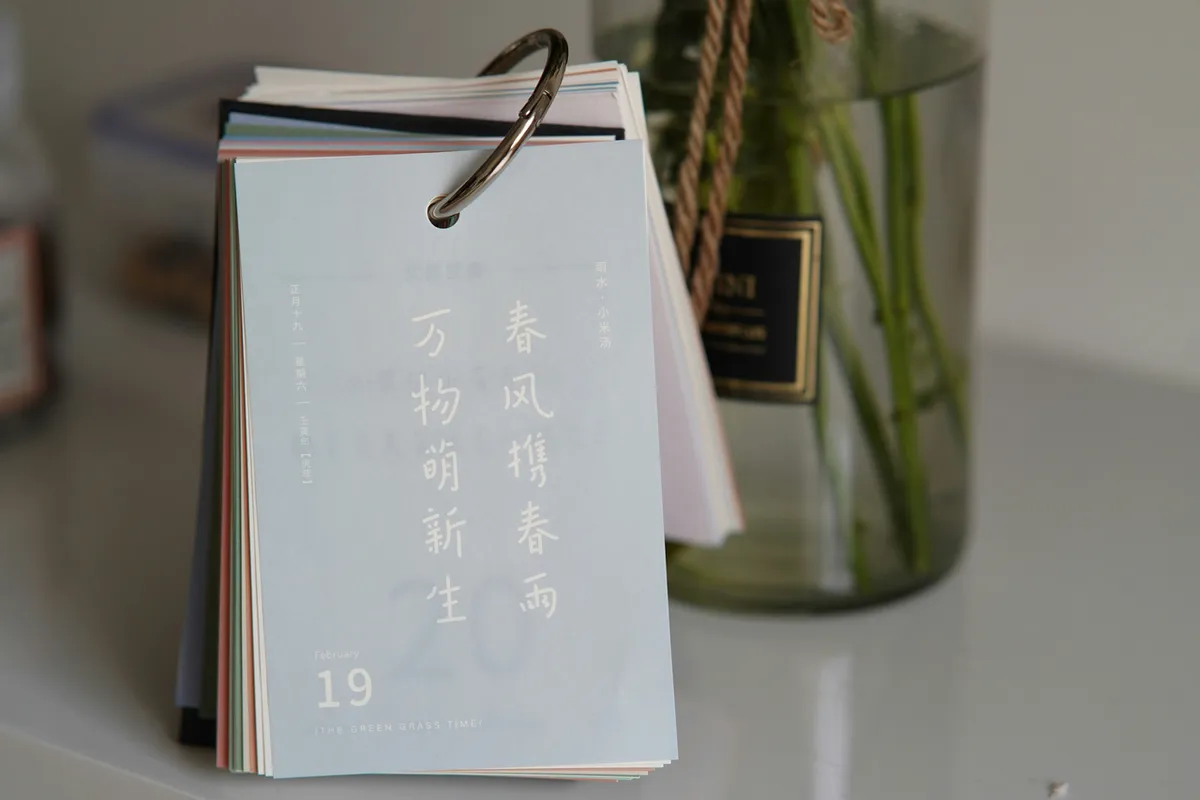 雨水·小米汤
春风携春雨
万物萌新生
正月十九 — 星期六 — 壬寅年【虎年】
February
19
[THE GREEN GRASS TIME]